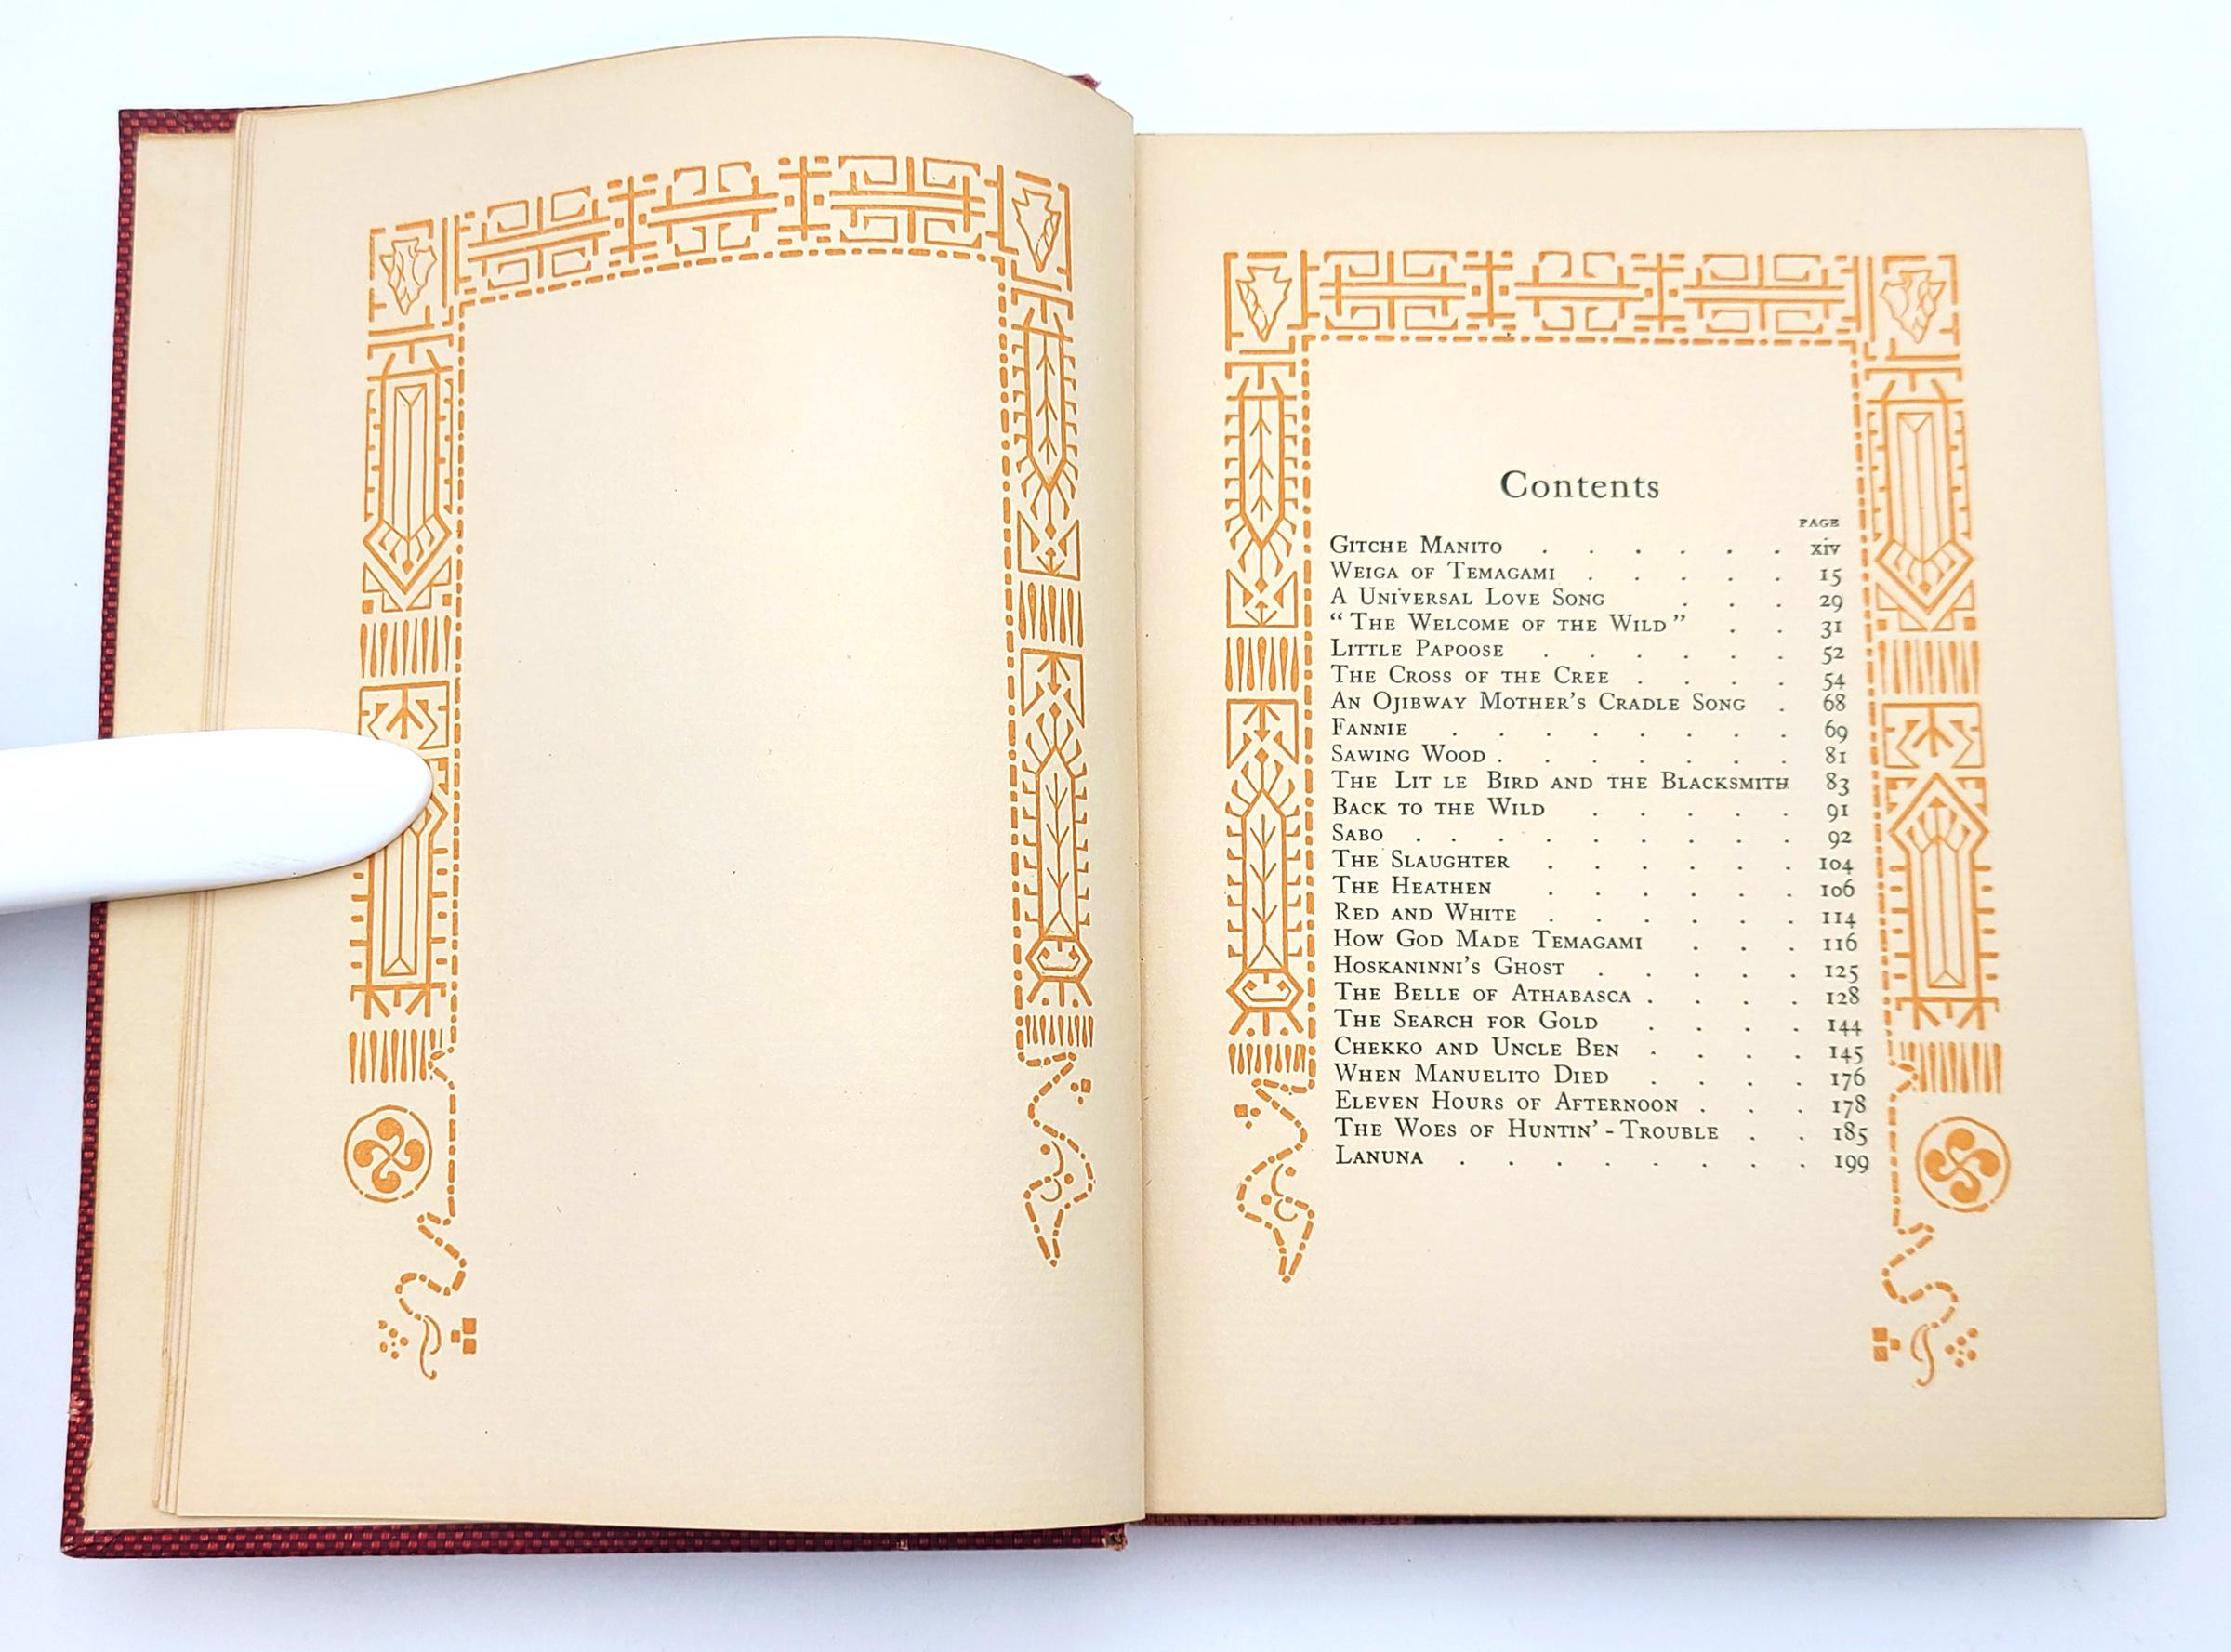 Contents
PAGE
GITCHE MANITO . . . . . . xiv
WEIGA OF TEMAGAMI . . . . . 15
A UNIVERSAL LOVE SONG . . . 29
“THE WELCOME OF THE WILD” . . 31
LITTLE PAPOOSE . . . . . . 52
THE CROSS OF THE CREE . . . . 54
AN OJIBWAY MOTHER’S CRADLE SONG . 68
FANNIE . . . . . . . . 69
SAWING WOOD . . . . . . . 81
THE LIT LE BIRD AND THE BLACKSMITH 83
BACK TO THE WILD . . . . . 91
SABO . . . . . . . . . 92
THE SLAUGHTER . . . . . . 104
THE HEATHEN . . . . . . 106
RED AND WHITE . . . . . . 114
HOW GOD MADE TEMAGAMI . . . 116
HOSKANINNI’S GHOST . . . . . 125
THE BELLE OF ATHABASCA . . . . 128
THE SEARCH FOR GOLD . . . . 144
CHEKKO AND UNCLE BEN . . . . 145
WHEN MANUELITO DIED . . . . 176
ELEVEN HOURS OF AFTERNOON . . . 178
THE WOES OF HUNTIN’-TROUBLE . . 185
LANUNA . . . . . . . . 199